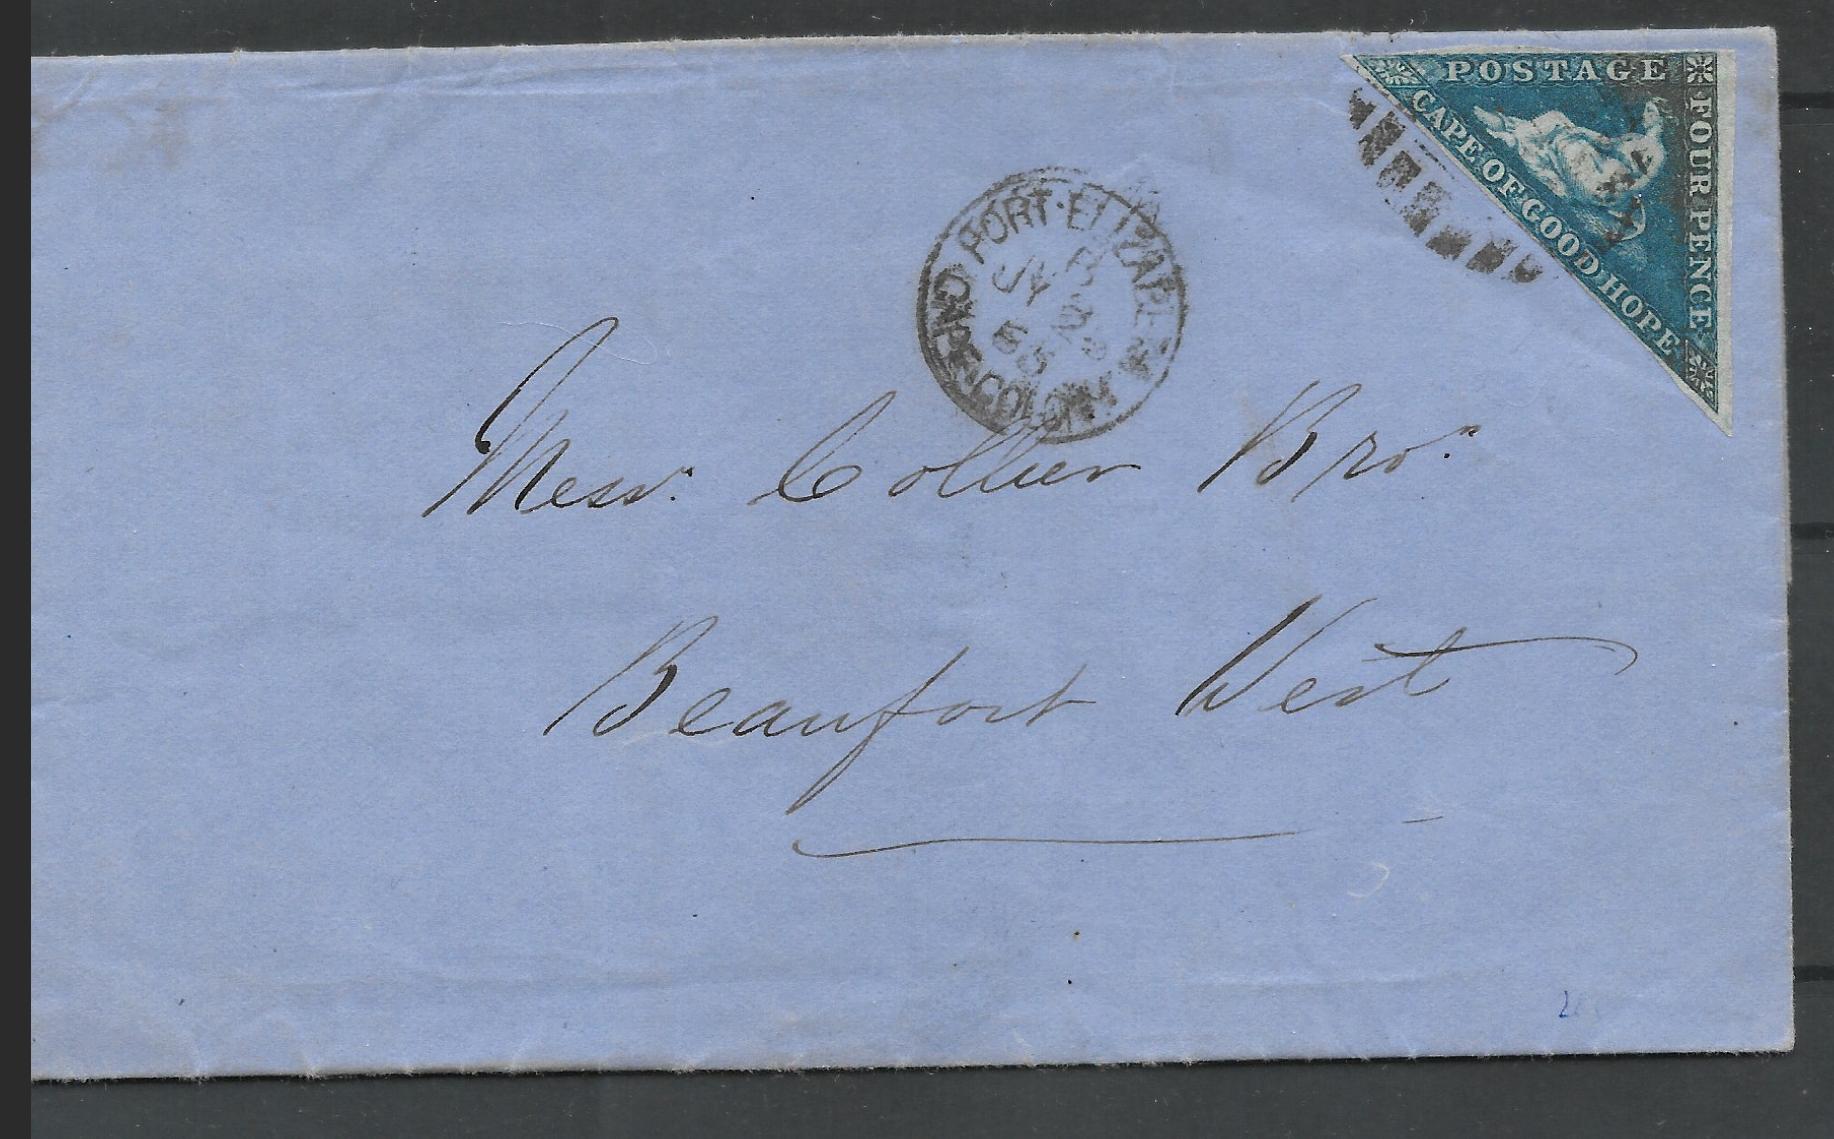 POSTAGE
FOUR PENCE
CAPE OF GOOD HOPE
PORT·ELIZABETH
JY
COLONY
Mess.rs Collier Bro.s
Beaufort West